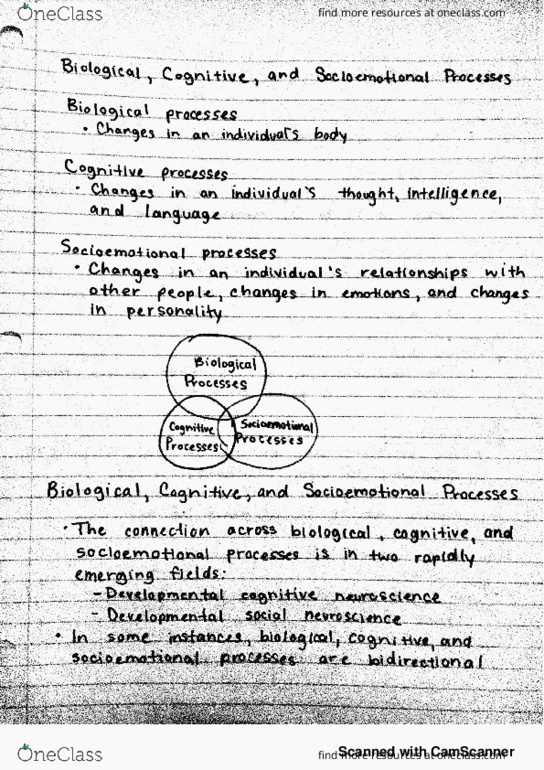 OneClass
find more resources at oneclass.com
Biological, Cognitive, and Socioemotional Processes
Biological processes
• Changes in an individual's body
Cognitive processes
• Changes in an individual's thought, intelligence,
and language
Socioemotional processes
• Changes in an individual's relationships with
other people, changes in emotions, and changes
in personality
Biological
Processes
Cognitive
Processes
Socioemotional
Processes
Biological, Cognitive, and Socioemotional Processes
• The connection across biological, cognitive, and
socioemotional processes is in two rapidly
emerging fields:
- Developmental cognitive neuroscience
- Developmental social neuroscience
• In some instances, biological, cognitive, and
socioemotional processes are bidirectional
OneClass
find more resources at oneclass.com
Scanned with CamScanner